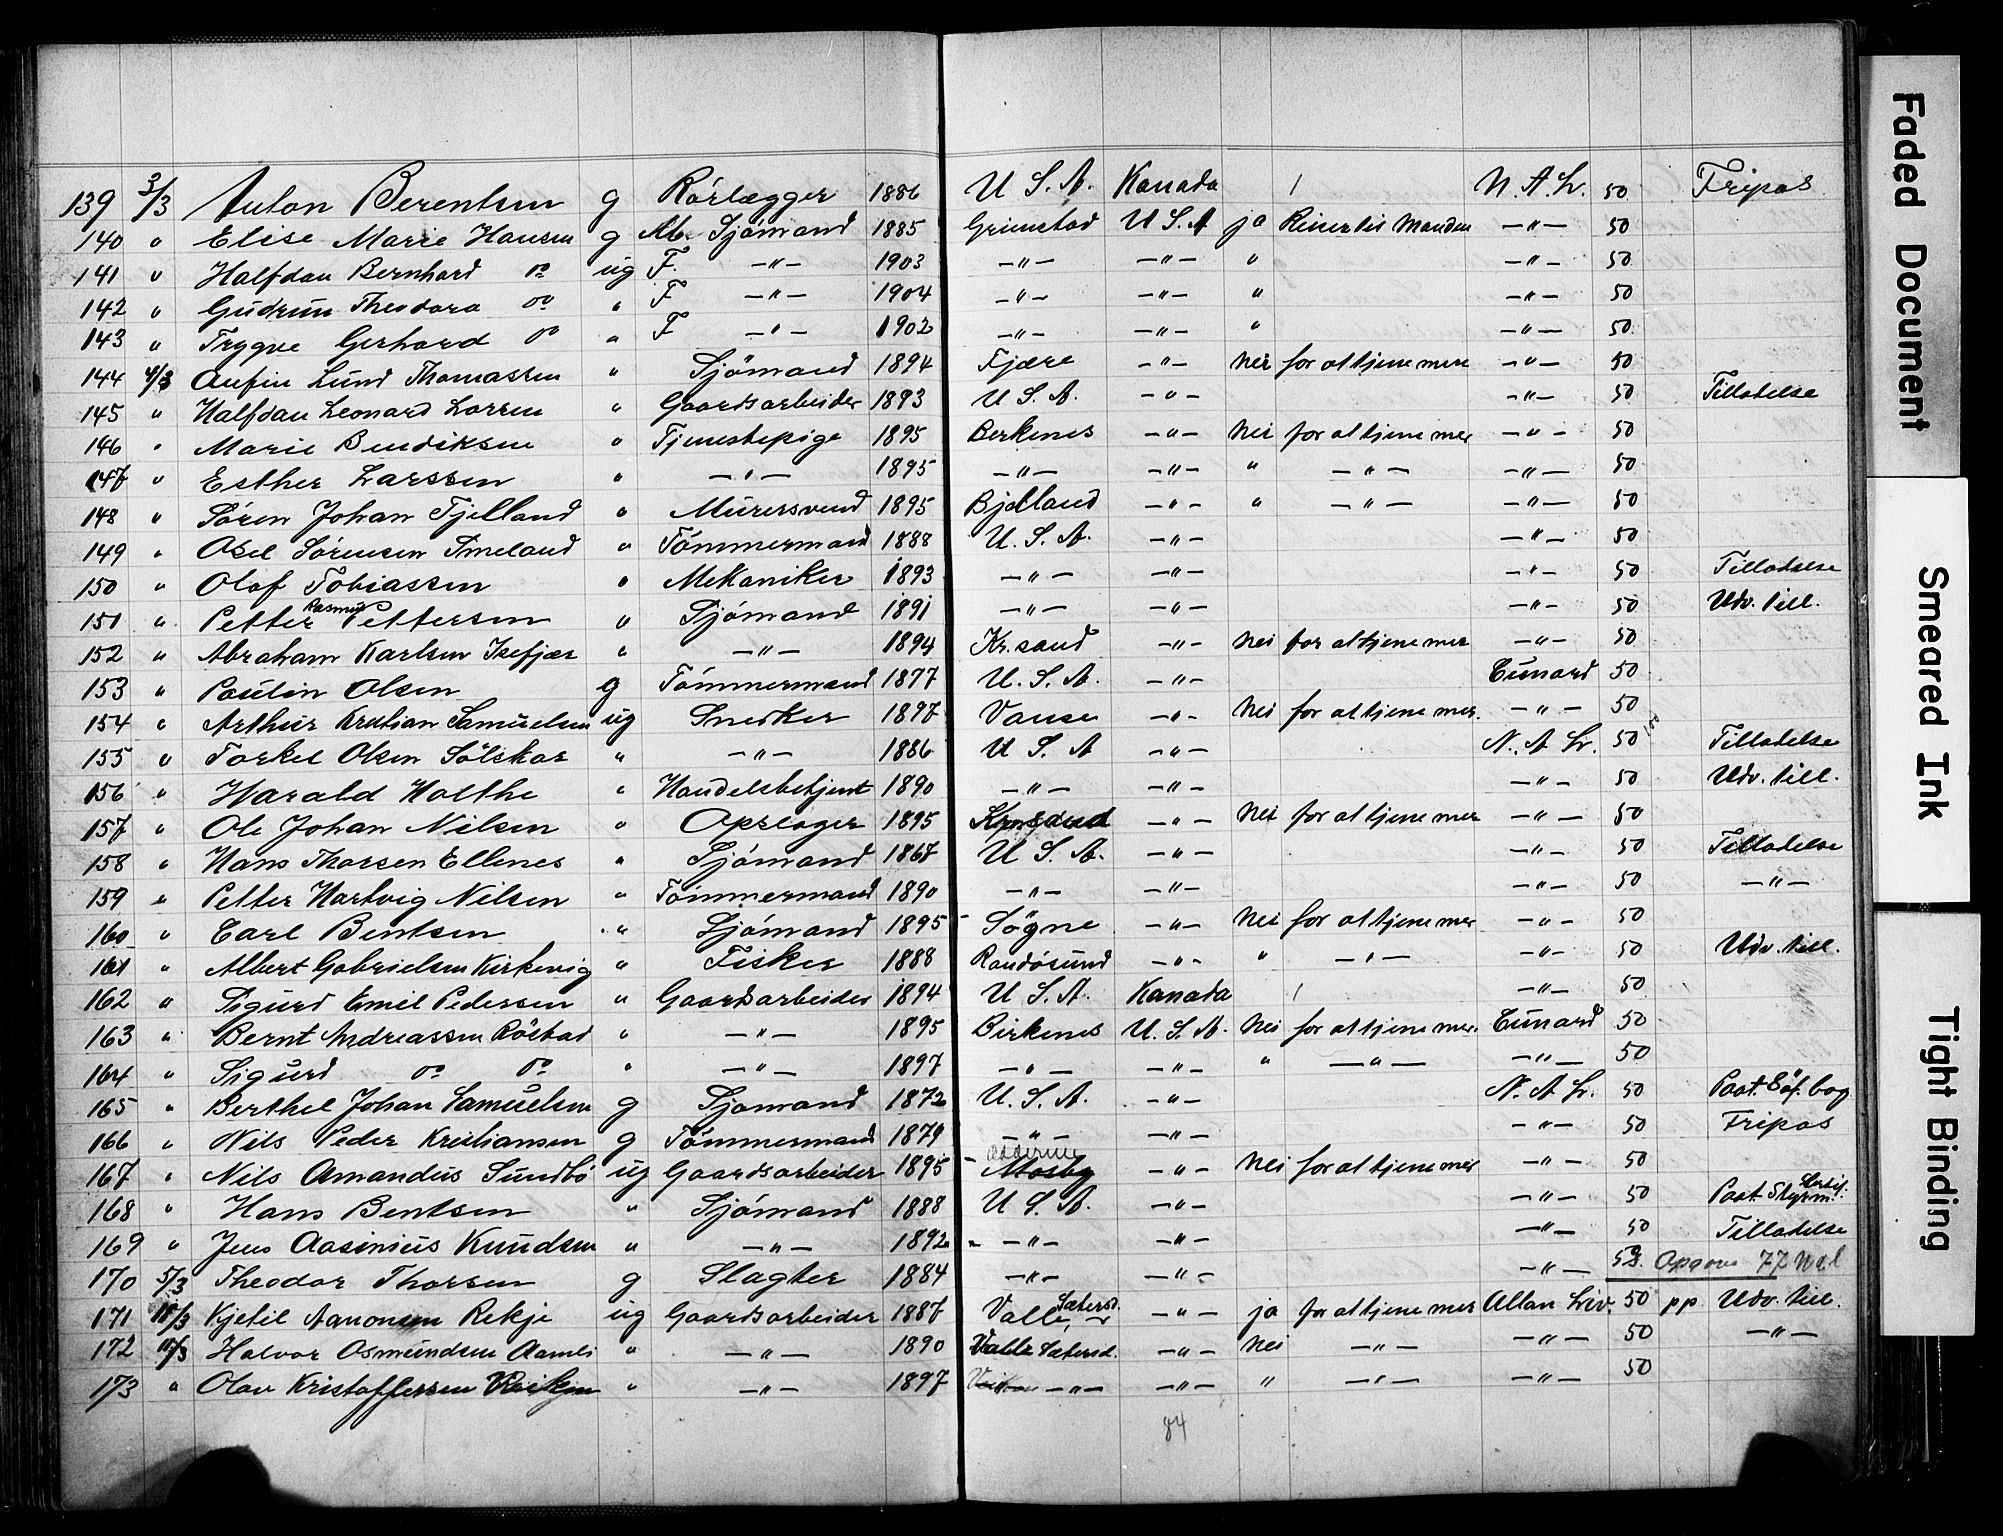 139 3/3 Anton Berentsen g Rörlægger 1886 U. S. A. Kanada / N. A. L. 50 Fripas
140 " Elise Marie Hansen g Sjömand 1885 Grimstad U. S. A ja Reiser til Manden —"— 50
141 " Halfdan Bernhard do ug F. —"— 1903 —"— —"— " —"— 50
142 " Gudrun Theodora do " F —"— 1904 —"— —"— " —"— 50
143 " Trygve Gerhard do " F —"— 1902 —"— —"— " —"— 50
144 4/3 Anfin Lund Thomassen " Sjömand 1894 Fjære —"— Nei for at tjene mere —"— 50
145 " Halfdan Leonard Larsen " Gaardsarbeider 1893 U. S. A. —"— —"— 50 Tilladelse
146 " Marie Bendiksen " Tjenestepige 1895 Berkenes —"— Nei for at tjene mer —"— 50
147 " Esther Larssen " —"— 1895 —"— —"— " —"— —"— 50
148 " Sören Johan Fjelland " Murersvend 1895 Bjelland —"— " —"— —"— 50
149 " Axel Sörensen Smeland " Tömmermand 1888 U. S. A. —"— —"— 50
150 " Olaf Tobiassen " Mekaniker 1893 —"— —"— —"— 50 Tilladelse
151 " Petter Rasmus Pettersen " Sjömand 1891 —"— —"— —"— 50 Udv. till.
152 " Abraham Karlsen Isefjær " —"— 1894 Kr.sand —"— Nei for at tjene mer —"— 50
153 " Paulin Olsen g Tömmermand 1877 U. S. A. —"— Cunard 50
154 " Arthur Kristian Samuelsen ug Snedker 1897 Vanse —"— Nei for at tjene mer. —"— 50
155 " Torkel Olsen Sölskar " —"— 1886 U. S. A —"— N. A. L. 50 100 Tilladelse
156 " Harald Holthe " Handelsbetjent 1890 —"— —"— —"— 50 Udv. till.
157 " Ole Johan Nilsen " Opslager 1895 —"— Nei for at tjene mer —"— 50
158 " Hans Thorsen Ellenes " Sjömand 1867 U. S. A. —"— —"— 50 Tilladelse
159 " Petter Hartvig Nilsen " Tömmermand 1890 —"— —"— —"— 50 —"—
160 " Carl Bentsen " Sjömand 1895 Sögne —"— Nei for at tjene mer —"— 50
161 " Albert Gabrielsen Kirkevig " Fisker 1888 Randösund —"— " —"— —"— 50 Udv. till.
162 " Sigurd Emil Pedersen " Gaardsarbeider 1894 U. S. A. Kanada / —"— 50
163 " Bernt Andreassen Röstad " —"— 1895 Birkenes U. S. A. Nei for at tjene mer. Cunard 50
164 " Sigurd do do " —"— 1897 —"— —"— " —"— —"— 50
165 " Berthel Johan Samuelsen g Sjömand 1872 U. S. A. —"— N. A. L. 50 Paat. Söf. bog
166 " Nils Peder Kristiansen g Tömmermand 1879 —"— —"— —"— 50 Fripas
167 " Nils Amandus Sundbö ug Gaardsarbeider 1895 Oddernes Mosby —"— Nei for at tjene mer —"— 50
168 " Hans Bentsen " Sjömand 1888 U. S. A. —"— —"— 50 Paat. Styrm.
169 " Jens Aasinius Knudsen " —"— 1892 —"— —"— —"— 50 Tilladelse
170 5/3 Theodor Thorsen g Slagter 1884 —"— —"— —"— 50
171 11/3 Kjetil Aanonsen Rekje ug Gaardsarbeider 1887 Valle Sætersd. —"— ja for at tjene mer Allan Liv. 50 pp Udv. till.
172 11/3 Halvor Osmundsen Aamli " —"— 1890 Valle Sætersd. —"— Nei —"— —"— 50 —"—
173 " Olav Kristoffersen " —"— 1897 —"— —"— " —"— —"— 50
84
Faded Document
Smeared Ink
Tight Binding